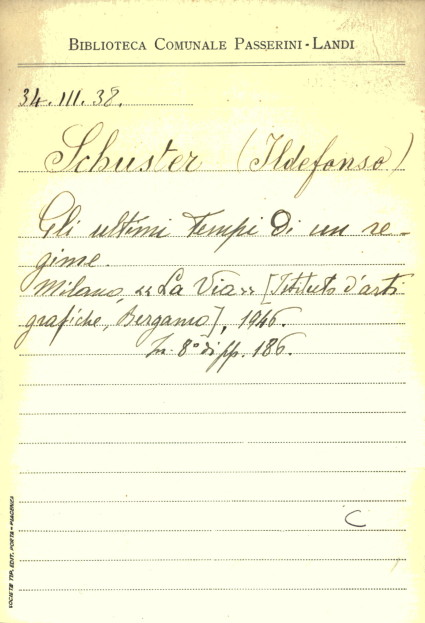 BIBLIOTECA COMUNALE PASSERINI-LANDI
34.III.38.
Schuster (Ildefonso)
Gli ultimi tempi di un re-
gime.
Milano, "La Via" [Istituto d'arti
grafiche, Bergamo], 1946.
In 8° di pp. 186.
C
SOCIETÀ TIP. EDIT. PORTA - PIACENZA